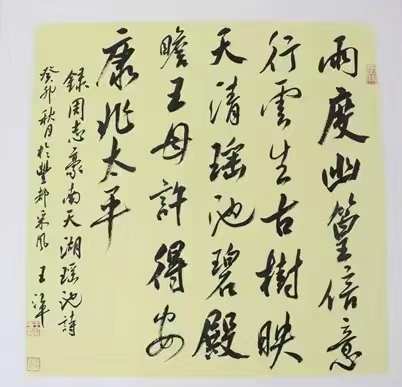 雨度幽篁信意
行雲生古樹映
天清瑤池碧殿
瞻王母許得安
康兆太平
錄周志豪南天湖瑤池詩
癸卯秋月於豐都采風王